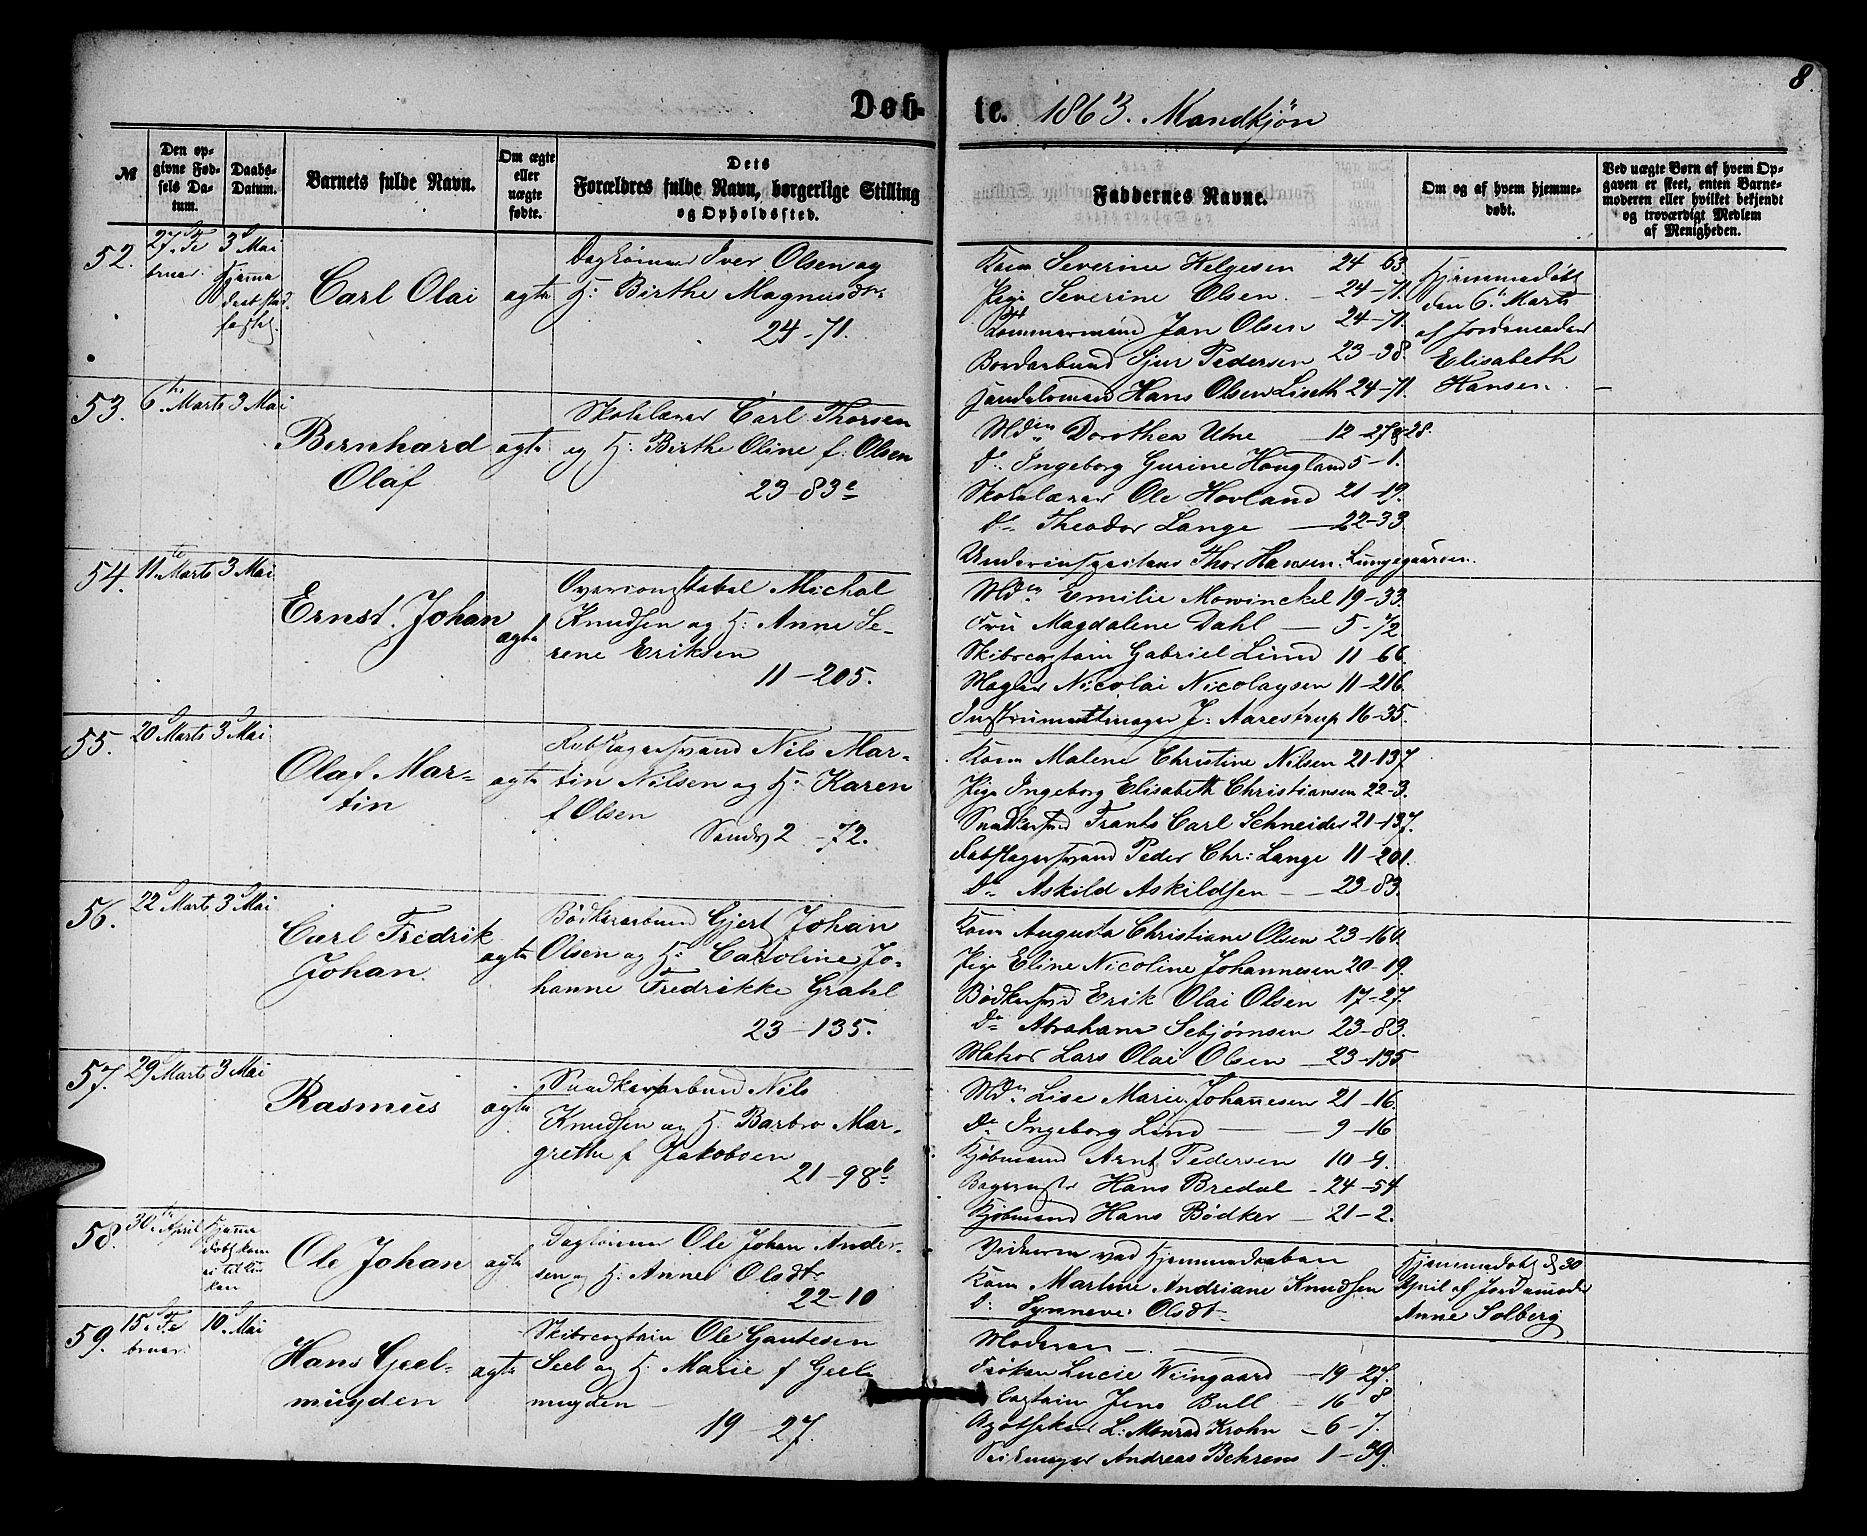 8.
Døb-
te. 1863. Mandkjön
№
Den op-
givne Fød-
sels Da-
tum.
Daabs-
Datum.
Barnets fulde Navn.
Om ægte
eller
uægte
fødte.
Dets
Forældres fulde Navn, borgerlige Stilling
og Opholdssted.
Faddernes Navne.
Om og af hvem hjemme-
døbt.
Ved uægte Børn af hvem Op-
gaven er skeet, enten Barne-
moderen eller hvilket bekjendt
og troværdigt Medlem
af Menigheden.
52.
27. Fe
bruar.
3 Mai
Hjemme
døbt stad
fæstet.
Carl Olai
ægte
Dagleier Iver Olsen og
H: Birthe Magnusdr.
24-71.
Kone Severine Helgesen 24-63.
Pige Severine Olsen 24-71.
Tømmermand Jan Olsen 24-71.
Sjur Pedersen 23-38.
Handelsmand Hans Olsen Liseth 24-71.
Hjemmedöbt
den 6. Marts
af Jordemoder
Elisabeth
Hansen.
53.
6te Marts
3 Mai
Bernhard
Olaf
ægte
Skolelærer Carl Thorsen
og H: Birthe Oline f. Olsen
23-83c
Md. Dorothea Utne 12-27&28.
D. Ingeborg Gurine Hougland 5-1.
Skolelærer Ole Hovland 21-19.
D. Theodor Lange 22-33.
Thor Hansen. Lungegaarden.
54.
11te Marts
3 Mai
Ernst Johan
ægte
Overconstabel Michal
Knudsen og H: Anne Se-
rene Eriksen
11-205.
Md. Emilie Mowinckel 19-33.
Fru Magdalene Dahl 5-72
Skibscaptain Gabriel Lind 11-66.
Mægler Nicolai Nicolaysen 11-216.
Instrumentmager J: Aarestrup 16-35.
55.
20 Marts
3 Mai
Olaf Mar-
tin
ægte
Rebslagersvend Nils Mar-
tin Nilsen og H. Karen
f Olsen
Sandv 2-72.
Kone Malene Christine Nilsen 21-137
Pige Ingeborg Elisabeth Christiansen 22-3.
Snedkersvd Frants Carl Schneider 21-137.
Rebslagersvend Peder Chr: Lange 11-201.
D. Askild Askildsen 23-83.
56.
22 Marts
3 Mai
Carl Fredrik
Johan
ægte
Bødkerarbeid Gjert Johan
Olsen og H: Caroline Jo-
hanne Fredrikke Grahl
23-135.
Kone Augusta Christiane Olsen 23-160.
Pige Eline Nicoline Johannesen 20-19.
Bødkersvd Erik Olai Olsen 17-27.
D. Abraham Sebjörnsen 23-83.
Matros Lars Olai Olsen 23-135
57.
29 Marts
3 Mai
Rasmus
ægte
Snedkerarbeid Nils
Knudsen og H. Barbro Mar-
grethe f Jakobsen
21-98b
Md. Lise Marie Johannesen 21-16.
D. Ingeborg Lind 9-16
Kjøbmand Arnt Pedersen 10-9.
Bagermstr Hans Bredal 24-54
Kjøbmand Hans Bödker 21-2.
58.
30te April
Hjemme
døbt kom
ei til Kir
ken
Ole Johan
ægte
Dagleier Ole Johan Ander-
sen og H. Anne Olsdtr
22-10
Vidnerne ved Hjemmedaaben
Kone Martine Andriane Knudsen
D: Synneve Olsdtr
Hjemmedöbt d. 30
April af Jordemoder
Anne Solberg
59.
15. Fe
bruar.
10. Mai
Hans Geel-
muyden
ægte
Skibscaptain Ole Gautesen
Seeb og H: Marie f Geel-
muyden
19-27.
Moderen
Frøken Lucie Wiingaard 19-27.
Captain Jens Bull 16-8
Apotheker L: Monrad Krohn 6-7.
Andreas Behrens 1-39.